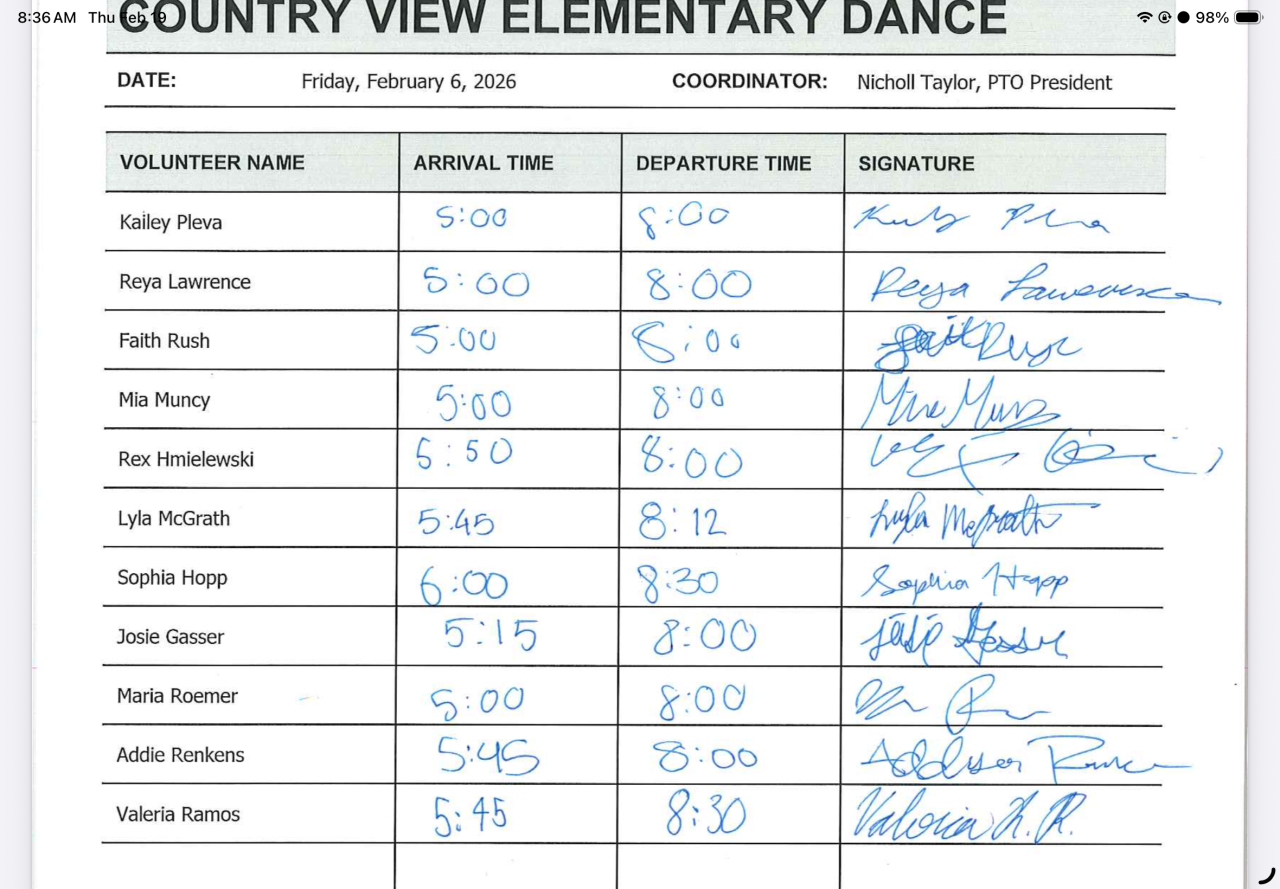 8:36 AM Thu Feb 19 98%
COUNTRY VIEW ELEMENTARY DANCE
DATE: Friday, February 6, 2026 COORDINATOR: Nicholl Taylor, PTO President
VOLUNTEER NAME ARRIVAL TIME DEPARTURE TIME SIGNATURE
Kailey Pleva 5:00 8:00
Reya Lawrence 5:00 8:00 Reya Lawrence
Faith Rush 5:00 8:00 Faith Rush
Mia Muncy 5:00 8:00 Mia Muncy
Rex Hmielewski 5:50 8:00
Lyla McGrath 5:45 8:12 Lyla McGrath
Sophia Hopp 6:00 8:30 Sophia Hopp
Josie Gasser 5:15 8:00 Josie Gasser
Maria Roemer 5:00 8:00
Addie Renkens 5:45 8:00 Addison
Valeria Ramos 5:45 8:30 Valeria H. R.